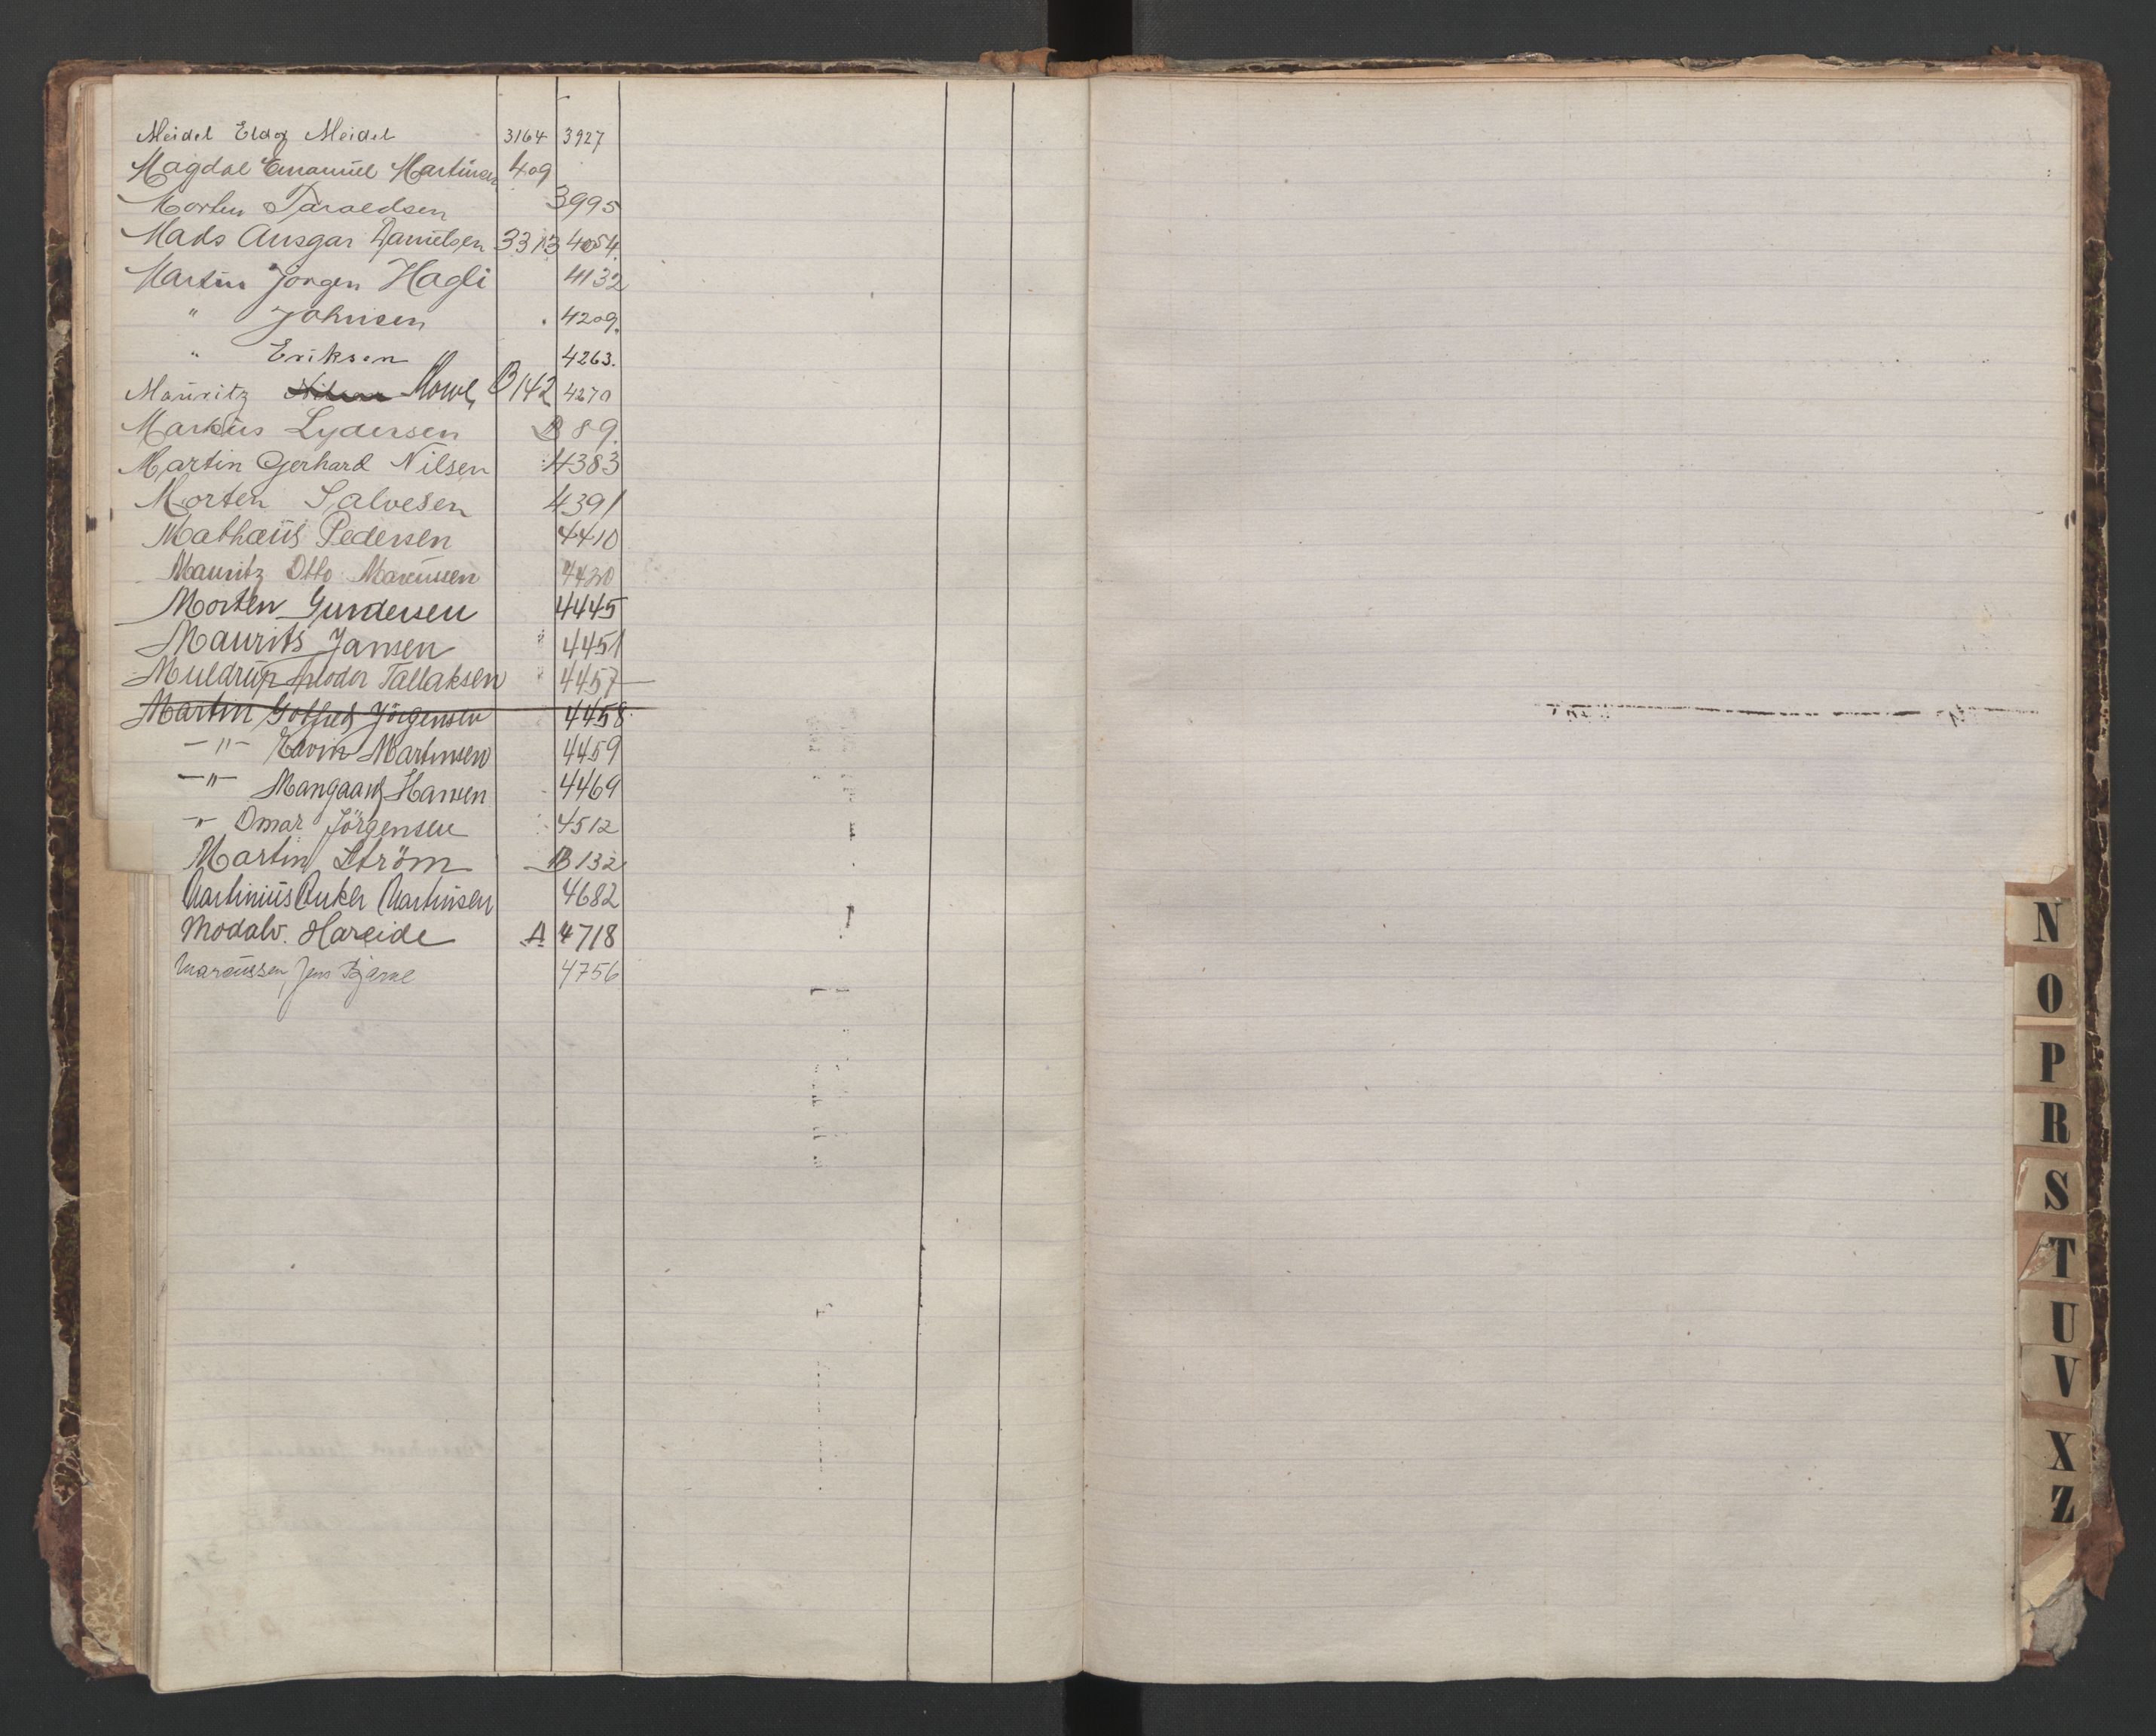 Meidel Eldof Meidel 3164 3927
Magdal Emanuel Martinsen 409
Morten Taraldsen 3995
Mads Ansgar Danielsen 3313 4054.
Martin Jörgen Hagli 4132
" Johnsen 4209.
" Eriksen 4263.
Mauritz Nilsen B 142 4270
Markus Lydersen B 89.
Martin Gerhard Nilsen 4383
Morten Salvesen 4391
Mathæus Pedersen 4410
Mauritz Otto Marcussen 4430
Morten Gundersen 4445
Maurits Jansen " 4451
Muldrup Tallaksen " 4457
Martin Gotfred Jörgensen 4458
-"- Edvin Martinsen 4459
-"- Hansen 4469
-"- Omar Jörgensen 4512
Martin Ström B 132
Martinius Anker Martinsen 4682
Modalv. Hareide A 4718
Marcussen, Jens Bjarne 4756
N
O
P
R
S
T
U
V
X
Z